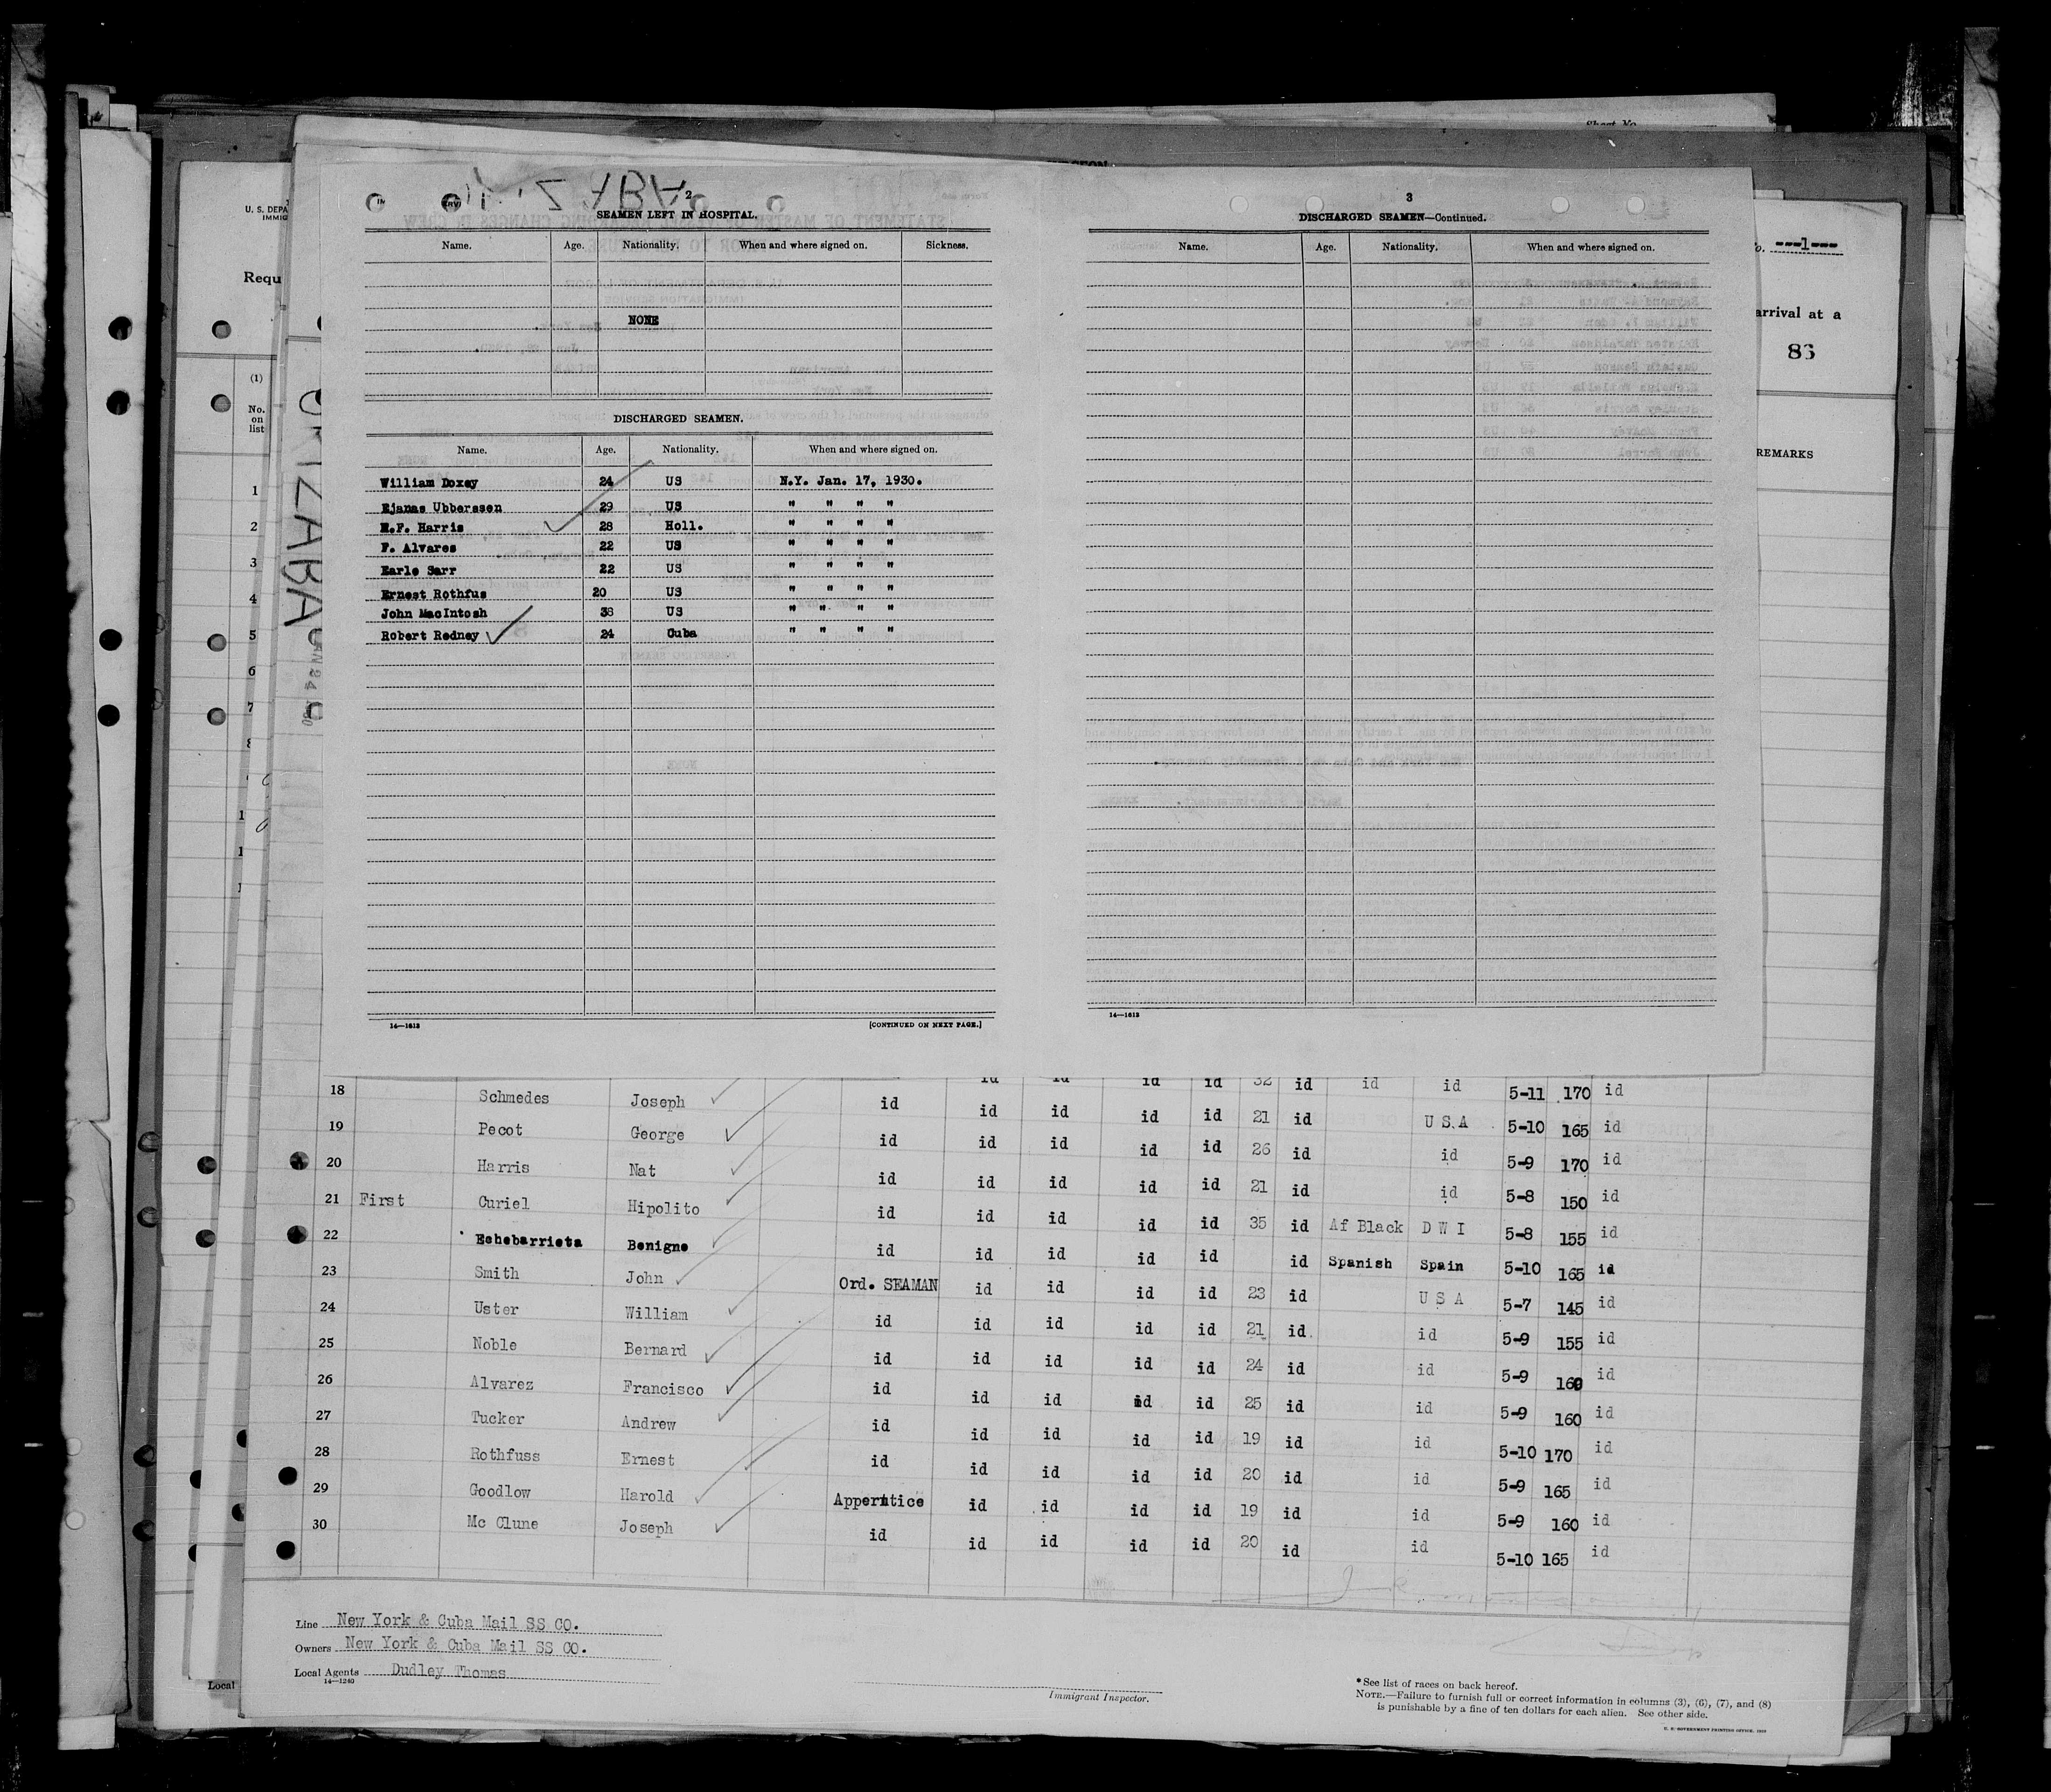 Sheet No.
U. S. DEPA
IMMIG
Requ
(1)
No.
on
list
1
2
3
4
5
6
7
ORIZABA
2
SEAMEN LEFT IN HOSPITAL.
Name. Age. Nationality. When and where signed on. Sickness.
NONE
DISCHARGED SEAMEN.
Name. Age. Nationality. When and where signed on.
William Doxey 24 US N.Y. Jan. 17, 1930.
Ejanas Ubberssen 29 US " " " "
M.F. Harris 28 Holl. " " " "
F. Alvares 22 US " " " "
Earle Sarr 22 US " " " "
Ernest Rothfus 20 US " " " "
John MacIntosh 38 US " " " "
Robert Redney 24 Cuba " " " "
14—1613 [CONTINUED ON NEXT PAGE.]
3
DISCHARGED SEAMEN—Continued.
Name. Age. Nationality. When and where signed on.
14—1613
o. ---1---
arrival at a
86
REMARKS
id id id id 32 id id id 5-11 170 id
18 Schmedes Joseph id id id id id 21 id U S A 5-10 165 id
19 Pecot George id id id id id 26 id id 5-9 170 id
20 Harris Nat id id id id id 21 id id 5-8 150 id
21 First Curiel Hipolito id id id id id 35 id Af Black D W I 5-8 155 id
22 Echebarrieta Benigno id id id id id id Spanish Spain 5-10 165 id
23 Smith John Ord. SEAMAN id id id id 23 id U S A 5-7 145 id
24 Uster William id id id id id 21 id. id 5-9 155 id
25 Noble Bernard id id id id id 24 id id 5-9 160 id
26 Alvarez Francisco id id id id id 25 id id 5-9 160 id
27 Tucker Andrew id id id id id 19 id id 5-10 170 id
28 Rothfuss Ernest id id id id id 20 id id 5-9 165 id
29 Goodlow Harold Apperntice id id id id 19 id id 5-9 160 id
30 Mc Clune Joseph id id id id id 20 id id 5-10 165 id
Line New York & Cuba Mail SS CO.
Owners New York & Cuba Mail SS CO.
Local Agents Dudley Thomas
14—1240
Local
Immigrant Inspector.
*See list of races on back hereof.
NOTE.—Failure to furnish full or correct information in columns (3), (6), (7), and (8)
is punishable by a fine of ten dollars for each alien. See other side.
U. S. GOVERNMENT PRINTING OFFICE